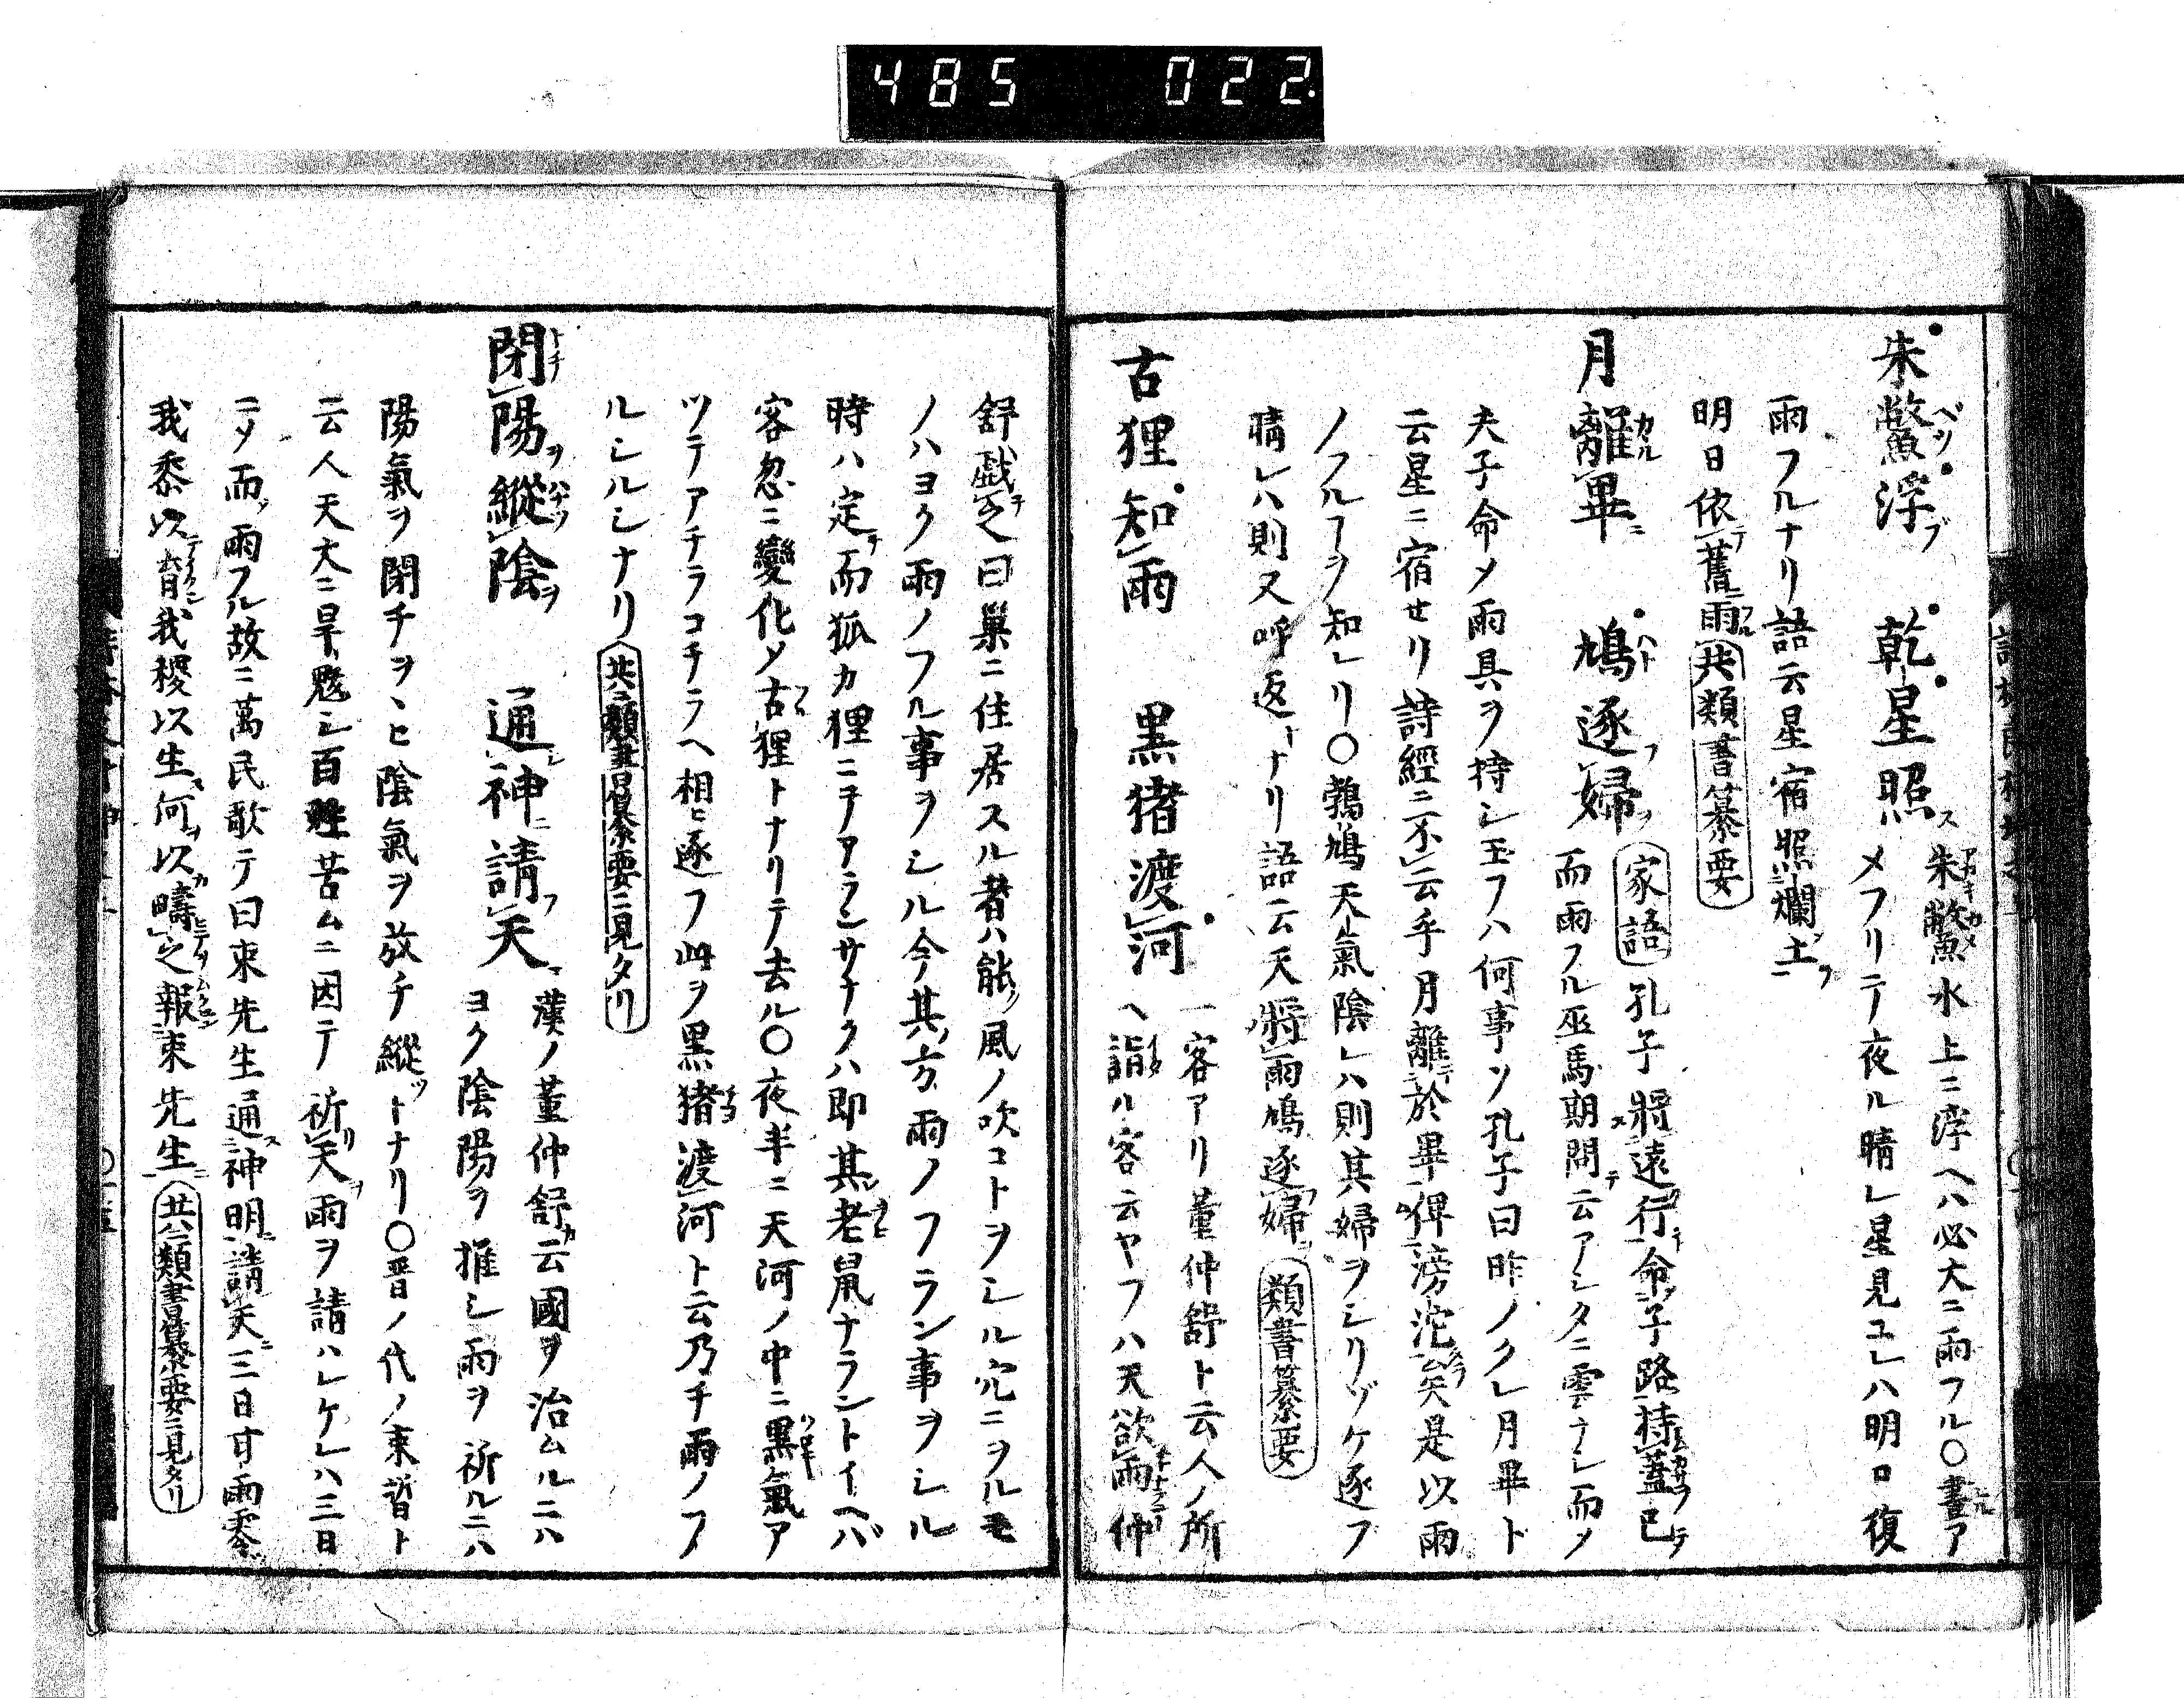 485 022.
朱鼈浮 乾星照 朱鼈水上ニ浮ヘハ必大ニ雨フル〇晝ア
メフリテ夜ル晴レ星見ユレハ明日復
雨フルナリ語云星宿照爛土
明日依舊雨 共類書纂要
月離畢 鳩逐婦 家語 孔子將遠行命子路持蓋已
而雨フル巫馬期問云アシタニ雲ナシ而ノ
夫子命メ雨具ヲ持シ玉フハ何事ソ孔子曰昨ノクレ月畢ト
云星ニ宿セリ詩經ニ不云乎月離於畢俾滂沱矣是以雨
ノフルヿヲ知レリ〇鵓鳩天氣陰レハ則其婦ヲシリゾケ逐フ
晴レハ則又呼返ナリ語云天將雨鳩逐婦 類書纂要
古狸知雨 黒猪渡河 一客アリ董仲舒ト云人ノ所
ヘ詣ル客云ヤフハ天欲雨仲
舒戯之曰巢ニ住居スル者ハ能風ノ吹コトヲシル穴ニヲルモ
ノハヨク雨ノフル事ヲシル今其方雨ノフラン事ヲシル
時ハ定而狐カ狸ニテアランサナクハ即其老鼠ナラントイヘバ
客忽ニ變化メ古狸トナリテ去ル〇夜半ニ天河ノ中ニ黒氣ア
ツテアチラコチラヘ相ヒ逐フ此ヲ黒猪渡河ト云乃チ雨ノフ
ルシルシナリ 共ニ類書纂要ニ見タリ
閉陽縱陰 通神請天 漢ノ董仲舒云國ヲ治ムルニハ
ヨク陰陽ヲ推シ雨ヲ祈ルニハ
陽氣ヲ閉チヲヽヒ陰氣ヲ放チ縱ツトナリ〇晋ノ代ノ束晳ト
云人天大ニ旱魃シ百姓苦ムニ因テ祈天雨ヲ請ハレケレハ三日
ニソ而雨フル故ニ萬民歌テ曰束先生通神明請天三日甘雨零
我黍以育我稷以生何以疇之報束先生 共ニ類書纂要ニ見タリ